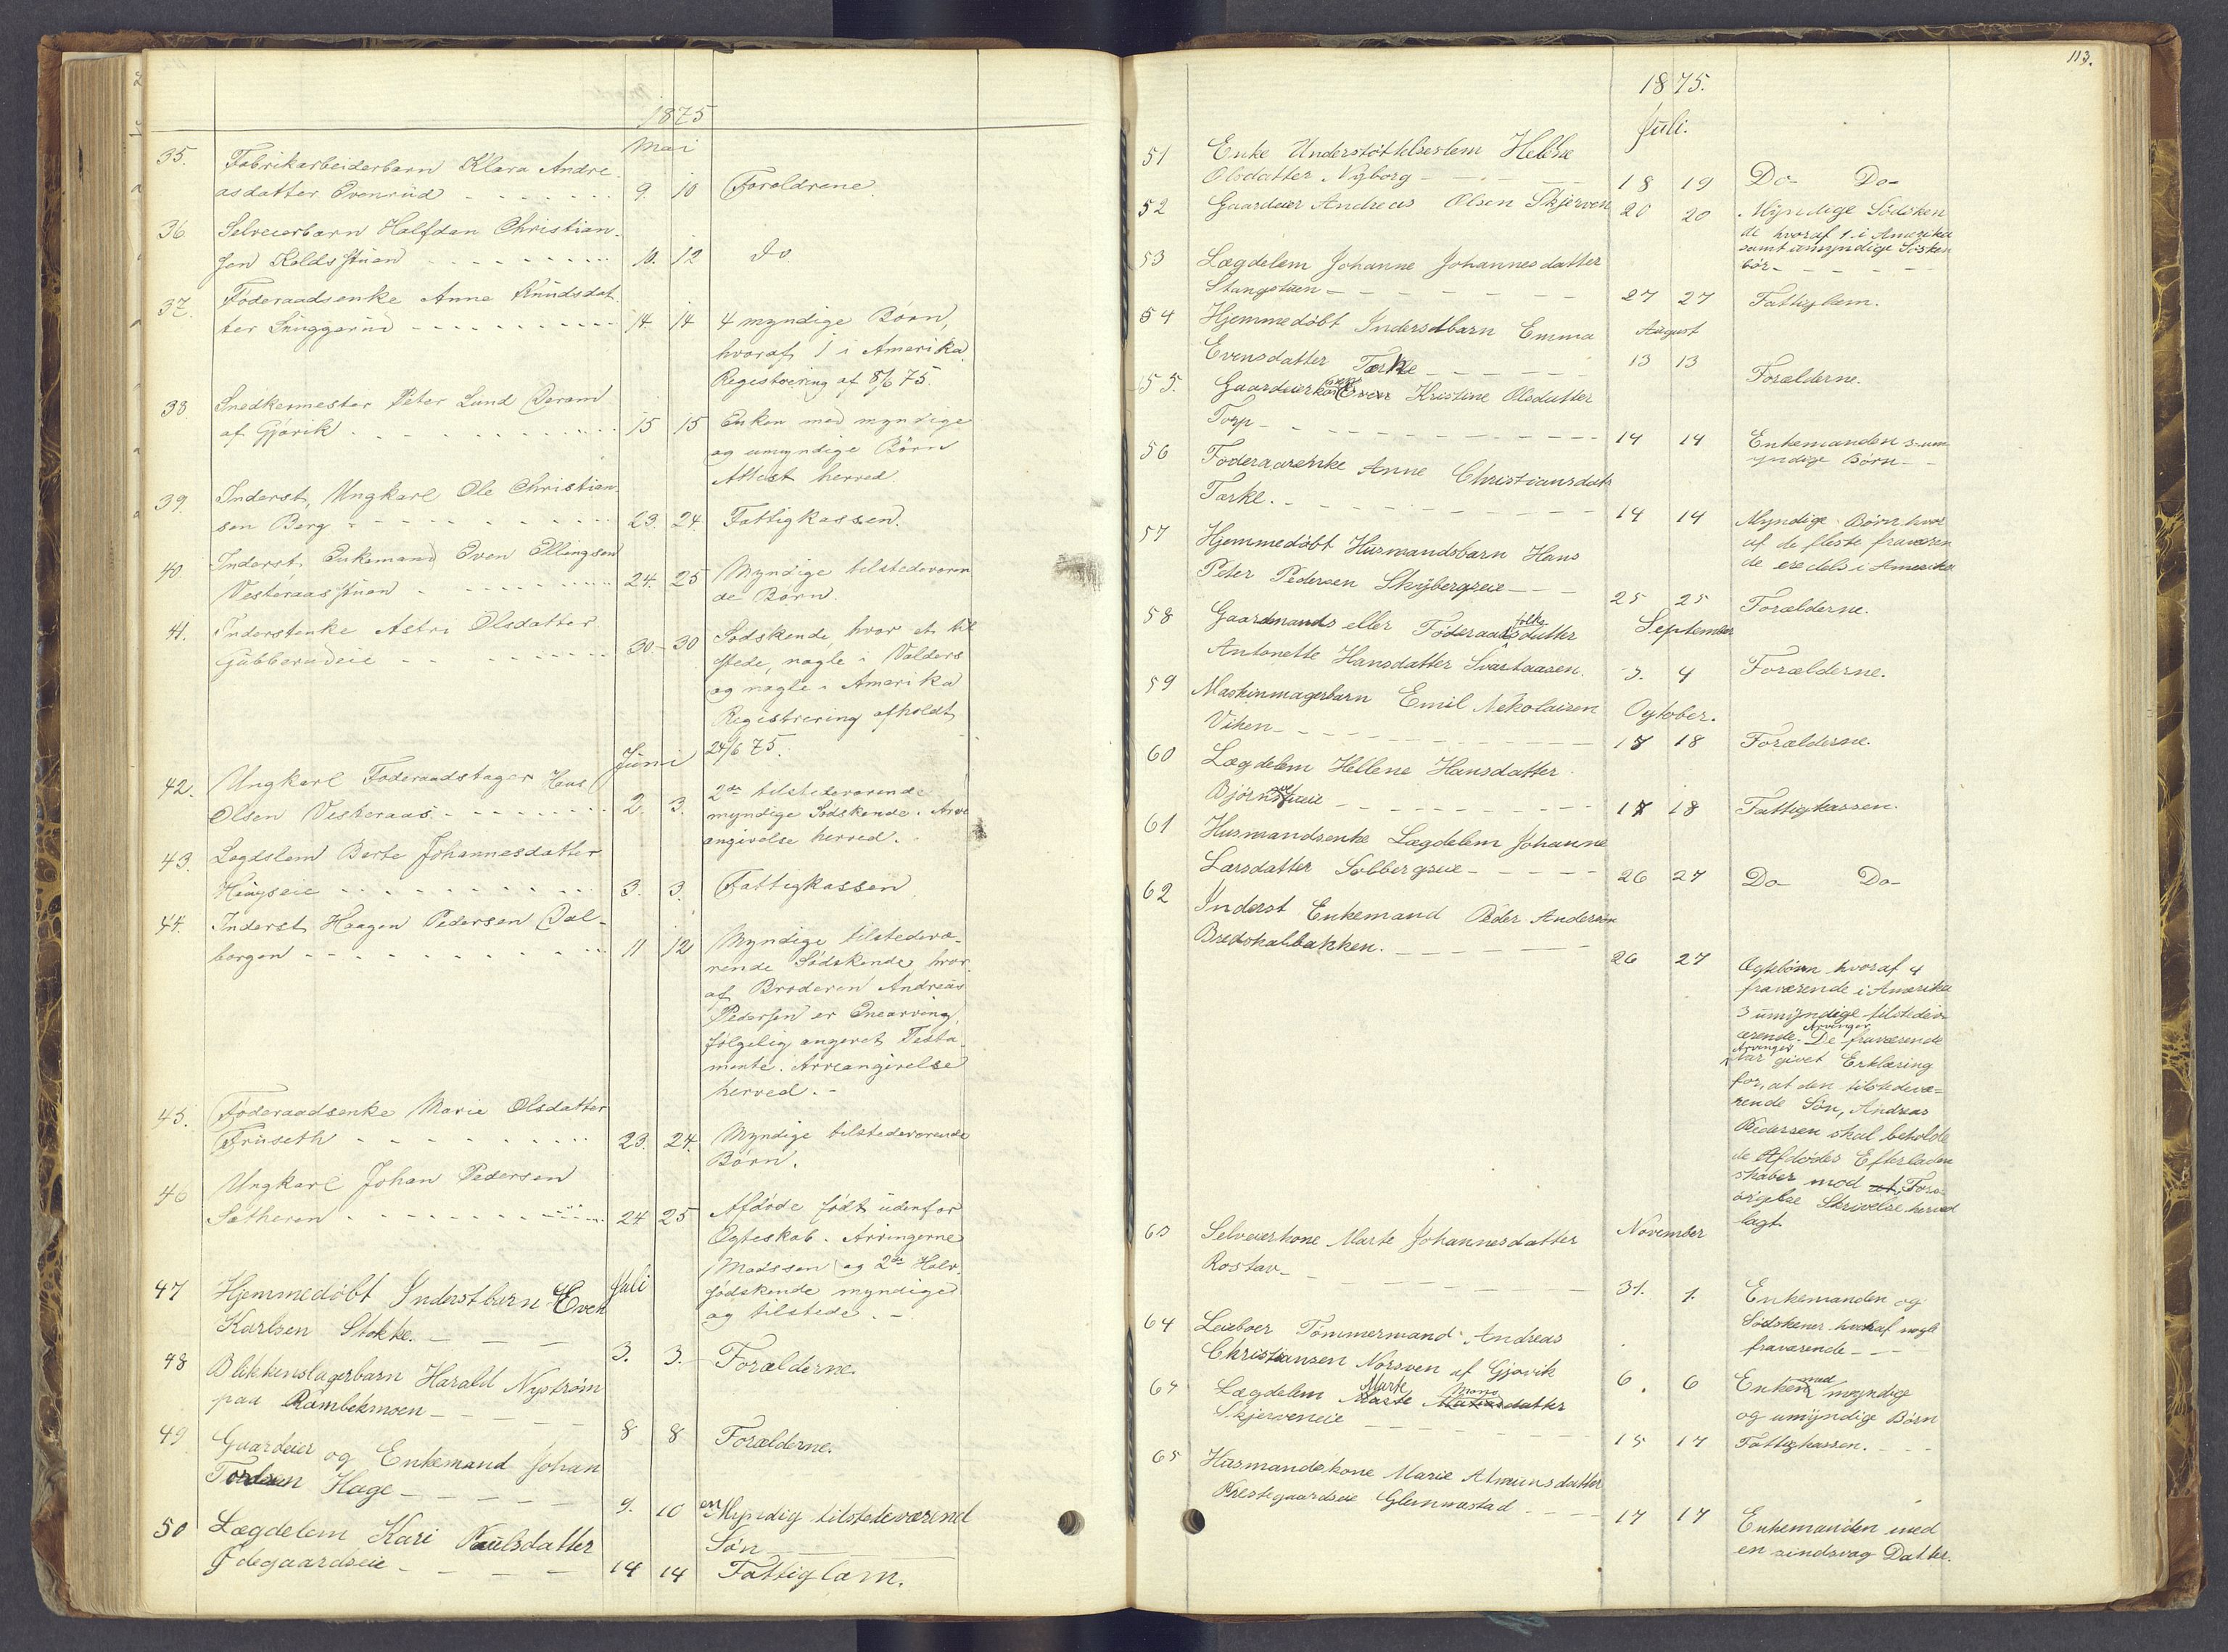 1875
Mai
35. Fabrikarbeiderbarn Klara Andre
asdatter Evenrud 9. 10 Forældrene.
36. Selveierbarn Halfdan Christian-
sen Koldsstuen 10. 12 Do
37. Føderaadsenke Anne Knudsdat-
ter Snuggerud 14. 14 4 myndige Børn,
hvoraf 1 i Amerika.
Registrering af 8/6 75.
38. Snedkermester Peter Lund
af Gjøvik 15 15 Enken med myndige
og umyndige Børn
Attest herved.
39. Inderst, Ungkarl Ole Christian-
sen Berg 23. 24. Fattigkassen.
40. Inderst, Enkemand Even Ellingsen
Vesteraasstuen 24. 25 Myndige tilstedeværen
de Børn.
41. Inderstenke Astri Olsdatter
Gubberudeie 30. 30 Sødskende, hvor et til
stede, nogle i Valders
og nogle i Amerika
Registrering afholdt
24/6 75.
Juni
42. Ungkarl Føderaadstager Hans
Olsen Vesteraas 2. 3. 2de tilstedeværende
myndige Sødskende. Arve
angivelse herved.
43. Lægdslem Berte Johannesdatter
Haugseie 3. 3. Fattigkassen
44. Inderst Haagen Pedersen Dal-
borgen 11 12 Myndige tilstedevæ-
rende Sødskende hvor
af Broderen Andreas
Pedersen er Enearving,
følgelig angivet Testa-
mente. Arveangivelse
herved. -
45. Føderaadsenke Marie Olsdatter
Fruseth 23. 24. Myndige tilstedeværende
Børn.
46 Ungkarl Johan Pedersen
Sætheren 24 25 Afdøde født udenfor
Ægteskab. Arvingerne
Madssen og 2de Halv-
sødskende myndige
og tilstede. -
Juli
47 Hjemmedøbt Inderstbarn Even
Karlsen Stokke. 3. 3. Forælderne.
48 Blikkenslagerbarn Harald Nystrøm
paa Rambekmoen 8 8 Forælderne.
49 Gaardeier og Enkemand Johan
Hage 9. 10 en Myndig tilstedeværend
Søn
50 Lægdelem Kari Paulsdatter
Ødegaardseie 14 14 Fattiglem.
113.
1875.
Juli.
51 Enke Understøttelseslem Helene
Olsdatter Nyborg 18 19 Do- Do-
52 Gaardeier Andreas Olsen Skjerven 20 20 Myndige Sødsken
de hvoraf 1 i Amerika
samt umyndige Sösken
bör-
53 Lægdelem Johanne Johannesdatter
Stangstuen 27 27 Fattiglem.
August
54 Hjemmedöbt Inderstbarn Emma
Evensdatter Tærke 13 13 Forælderne.
55. Gaardeierkone Kristine Olsdatter
Torp 14 14 Enkemanden 3 um
yndige Börn
56 Föderaadenke Anne Christiansdatt
Tærke. 14 14 Myndige Börn hvor
af de fleste fraværen
de ere dels i Amerika
57 Hjemmedöbt Husmandsbarn Hans
Peter Pedersen Skybergseie 25 25 Forælderne.
September
58 Gaardmands eller Föderaadsfolks datter
Antonette Hansdatter Svartaasen. 3. 4 Forælderne.
59 Maskinmagerbarn Emil Nekolaisen Oytober.
Viken 17 18 Forælderne.
60 Lægdelem Hellene Hansdatter
17 18 Fattigkassen.
61 Husmandsenke Lægdelem Johanne
Larsdatter Solbergseie 26 27 Do- Do-
62 Inderst Enkemand Peder Andersen
Bredskalbakken. 26 27 Ægtebörn hvoraf 4
fraværende i Amerika
3 umyndige tilstedev-
ærende. De fraværende
Arvinger
har givet Erklæring
for, at den tilstedevæ-
rende Sön, Andreas
Pedersen skal beholde
de Afdödes Efterladen
skaber mod at, Fors-
örgelse Skrivelse herved
lagt.
November
63 Selveierkone Marte Johannesdatter
Rostav 31. 1. Enkemanden og
Södskener hvoraf nogle
fraværende
64 Leieboer Tömmermand Andreas
Christiansen Norsven af Gjøvik 6. 6 Enken med myndige
og umyndige Börn
64 Lægdelem Marte
Skjerveneie 15 17 Fattigkassen.
65 Husmandskone Marie Amunsdatter
Prestegaardseie Glemmestad 17 17 Enkemanden med
en sindsvag Datter.